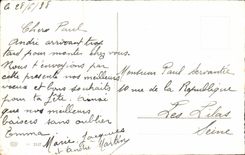 Le 28/6/38
Cher Paul
André arrivant trop
tard pour monter chez vous.
Nous t'envoyons par
cette présent nos meilleurs
vœux et bons souhaits
pour ta fête. Ainsi
que nos meilleurs
baisers sans oublier
Emma.
Marie Jacques
et André Martin
Monsieur Paul
10 rue de la République
Les Lilas
Seine